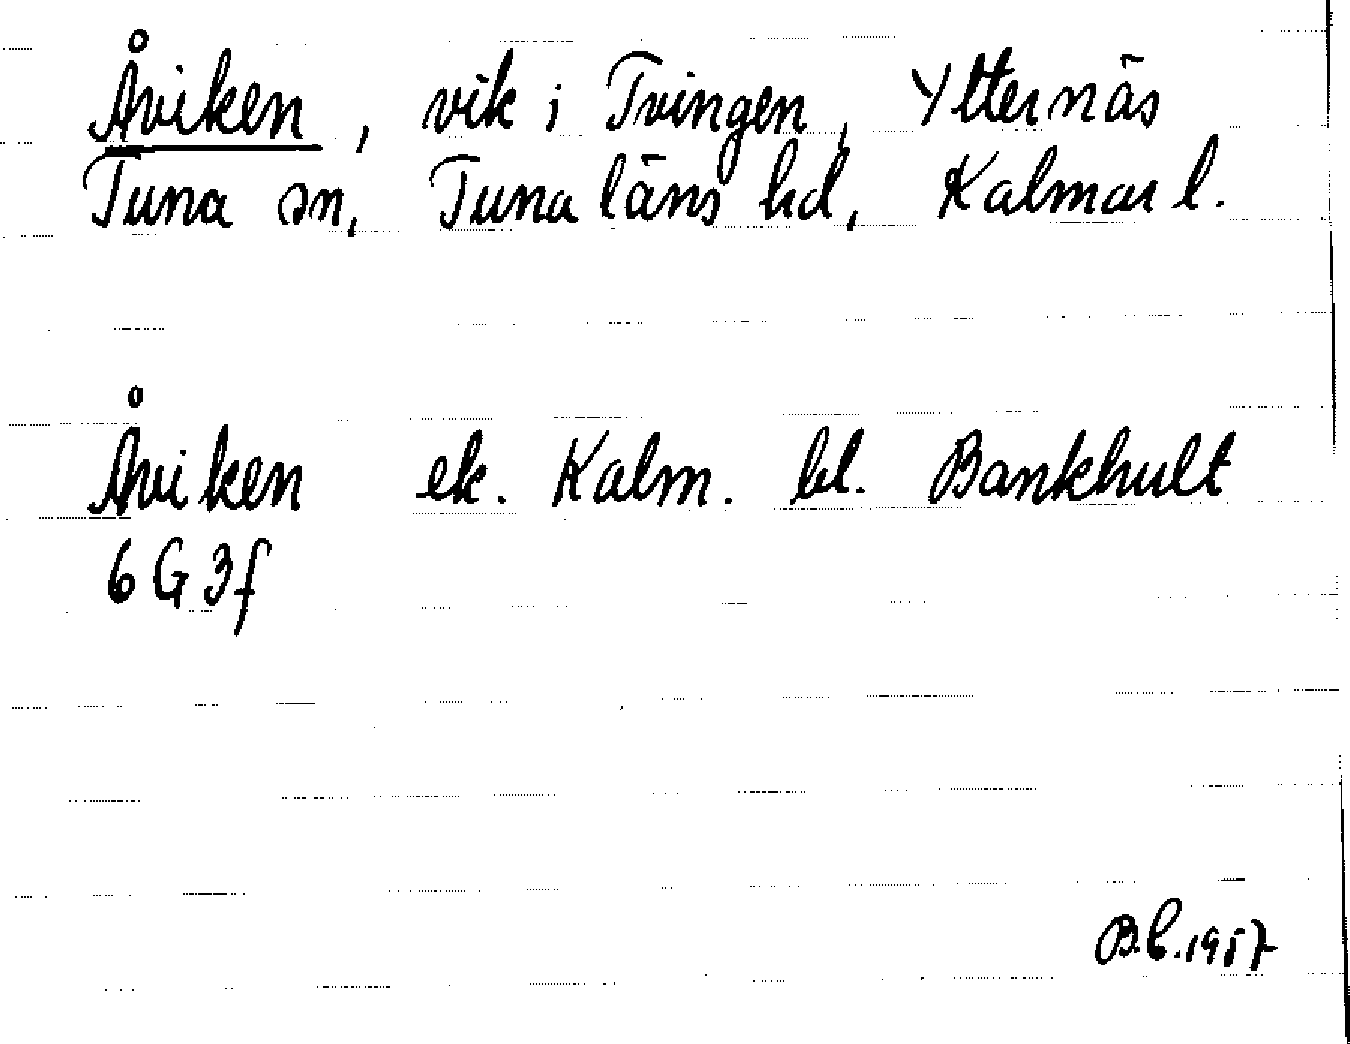 Åviken, vik i Tvingen, Ytternäs
Tuna sn, Tunaläns hd, Kalmar l.
Åviken ek. Kalm. bl. Bankhult
6G3f
B.L.1957